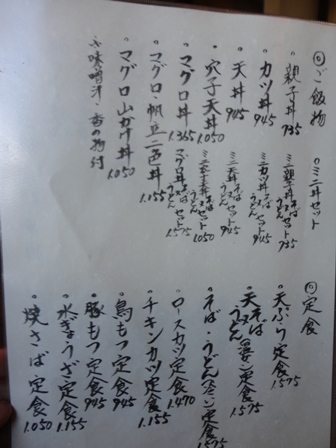 ◎ご飯物
・親子丼 735
・カツ丼 945
・天丼 945
・穴子天丼 1.050
・マグロ丼 1.365
・マグロ・帆立二色丼 1.155
・マグロ山かけ丼 1.050
味噌汁・香の物付
○ミニ丼セット
ミニ親子丼 そば うどん セット 735
ミニカツ丼 そば うどん セット 945
ミニ天丼 そば うどん セット 945
そば うどん セット 1050
マグロ丼 そば うどん セット 1.575
◎定食
・天ぷら定食 1.575
・天 そば うどん 定食 1.575
・そば・うどん 定食 1.575
・ロースカツ定食 1.470
・チキンカツ定食 1.155
・鳥もつ定食 945
・豚もつ定食 945
・水ぎょうざ定食 1.155
・焼さば定食 1.050